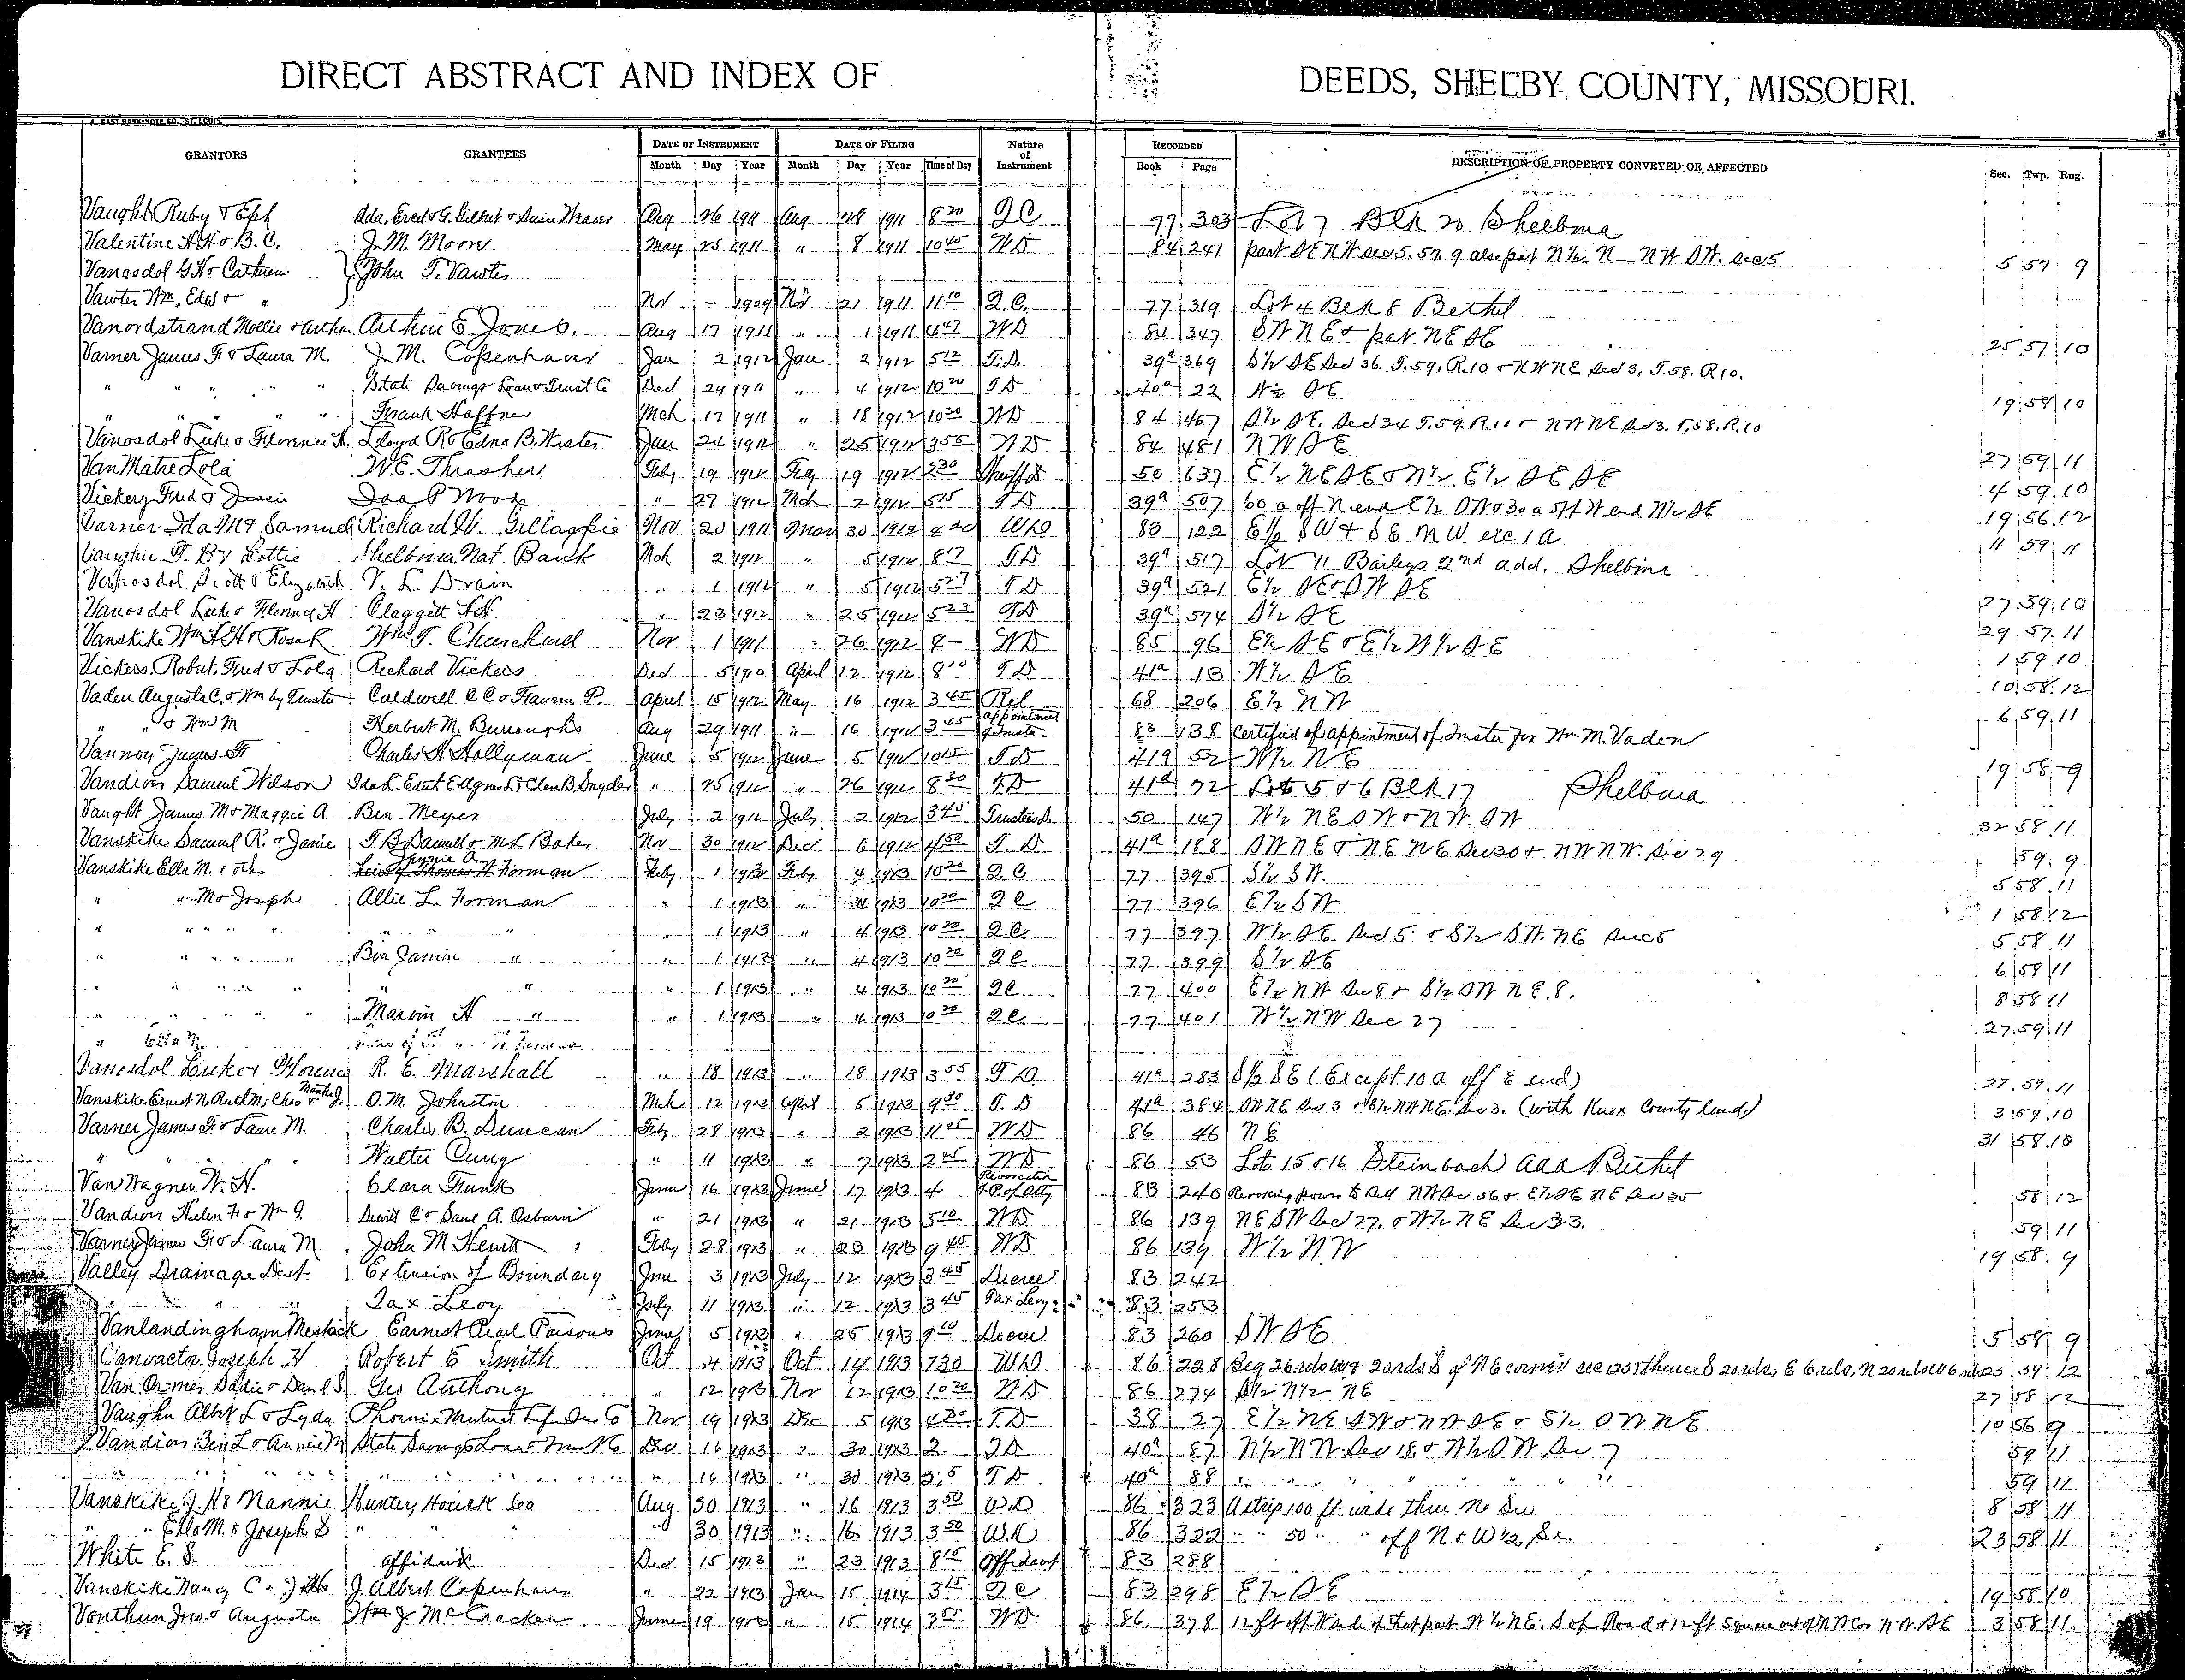 DIRECT ABSTRACT AND INDEX OF DEEDS, SHELBY COUNTY, MISSOURI.
GRANTORS GRANTEES DATE OF INSTRUMENT DATE OF FILING Nature of Instrument RECORDED DESCRIPTION OF PROPERTY CONVEYED OR AFFECTED Sec. Twp. Rng.
Month Day Year Month Day Year Time of Day Book Page
Vaught Ruby & Eph Aug 26 1911 Aug 28 1911 8 20 Q C 77 303 Lot 7 Blk 20 Shelbina
Valentine H H & B. C. J. M. Moon May 25 1911 " 8 1911 10 40 W D 84 241 part SE NW sec 5. 57. 9 also part N 1/2 NW SW. sec 5 5 57 9
Vanosdol G H & John T. Vawter
Vawter Wm, Edw & " Nov - 1909 Nov 21 1911 11 10 Q. C. 77 319 Lot 4 Blk 8 Bethel
Vanordstrand Mollie & Arthur E. Jones. Aug 17 1911 " 1 1911 4 47 W D 84 347 SW NE & part NE SE 25 57 10
Varner James F & Laura M. J. M. Copenhaver Jan 2 1912 Jan 2 1912 5 12 T. D. 39a 369 S 1/2 SE Sec 36. T. 59. R. 10 & NW NE Sec 3. T. 58. R 10.
" " " " " State Savings Loan & Trust Co Dec 29 1911 " 4 1912 10 20 T D 40a 22 W 1/2 SE 19 58 10
" " " " " Frank Haffner Mch 17 1911 " 18 1912 10 30 W D 84 467 S 1/2 SE Sec 34 T. 59. R. & NW NE Sec 3. T. 58. R. 10
Vanosdol Luke & Florence H. Lloyd R & Edna B. Jan 24 1912 " 25 1912 3 55 W D 84 481 N W S E 27 59 11
Van Matre Lola W. E. Thrasher Feby 19 1912 Feby 19 1912 2 30 Sheriff D 50 637 E 1/2 NE SE & N 1/2 E 1/2 SE SE 4 59 10
Vickery Fred & Jessie Ida P Wood " 27 1912 Mch 2 1912 5 15 T D 39a 507 60 a off N end E 1/2 SW & 30 a off N end W 1/2 SE 19 56 12
Varner Ida M & Samuel Richard W. Gillaspie Nov 20 1911 Mar 30 1912 4 20 W D 83 122 E 1/2 SW & SE NW exc 1 a 11 59 11
Vaughn F. B & Lottie Shelbina Nat Bank Mch 2 1912 " 5 1912 8 17 T D 39a 517 Lot 11 Baileys 2nd add. Shelbina
Vanosdol Scott & Elizabeth V. L. Drain " 1 1912 " 5 1912 5 27 T D 39a 521 E 1/2 SE & SW SE 27 59 10
Vanosdol Luke & Florence H Claggett " 23 1912 " 25 1912 5 23 T D 39a 574 S 1/2 SE 29 57 11
Vanskike Wm H H & Rosa K Wm T. Churchwell Nov. 1 1911 " 26 1912 8 - W D 85 96 E 1/2 SE & E 1/2 W 1/2 SE 1 59 10
Vickers Robert, Fred & Lola Richard Vickers Dec 5 1910 April 12 1912 8 10 T D 41a 13 W 1/2 SE 10 58 12
Vaden Augusta C. & Wm by Trustee Caldwell C C & P. April 15 1912 May 16 1912 3 45 Rel 68 206 E 1/2 NW 6 59 11
" " & Wm M Herbert M. Burroughs Aug 29 1911 " 16 1912 3 45 appointment of Trustee 83 138 Certified of appointment of Trustee for Wm M. Vaden
Vannoy James H Charles H Hollyman June 5 1912 June 5 1912 10 15 T D 41a 52 W 1/2 NE 19 58 9
Vandiver Samuel Wilson " 25 1912 " 26 1912 8 30 T. D 41a 72 Lots 5 & 6 Blk 17 Shelbina
Vaught James M & Maggie A Ben Meyer July 2 1912 July 2 1912 3 45 Trustees D. 50 147 W 1/2 NE SW & NW SW 32 58 11
Vanskike Samuel R. & Janie T. B. & M. L. Baker Nov 30 1912 Dec 6 1912 4 50 T. D 41a 188 SW NE & NE NE Sec 30 & NW NW. Sec 29 59 9
Vanskike Ella M. et al Forman Feby 1 1913 Feby 4 1913 10 20 Q C 77 395 S 1/2 SW. 5 58 11
" " M & Joseph Allie L. Forman " 1 1913 " 4 1913 10 20 Q C 77 396 E 1/2 SW 1 58 12
" " " " " " " " 1 1913 " 4 1913 10 20 Q C 77 397 W 1/2 SE Sec 5. & S 1/2 SW. NE Sec 5 5 58 11
" " " " Benjamin " " 1 1913 " 4 1913 10 20 Q C 77 399 S 1/2 SE 6 58 11
" " " " " " " 1 1913 " 4 1913 10 20 Q C 77 400 E 1/2 NW Sec 8 & S 1/2 SW NE. 8. 8 58 11
" " " " Marvin H " " 1 1913 " 4 1913 10 20 Q C 77 401 W 1/2 NW Sec 27 27 59 11
" Ella M.
Vanosdol Luke & Florence R. E. Marshall " 18 1913 " 18 1913 3 55 T D. 41a 283 S 1/2 SE (Except 10 a off E end) 27 59 11
Vanskike Ernest N. Ruth M; Chas & O. M. Johnston Mch 12 1913 April 5 1913 9 30 T. D 41a 384 SW NE Sec 3 & S 1/2 NW NE. Sec 3. (with Knox County land) 3 59 10
Varner James F & Laura M. Charles B. Duncan Feby 28 1913 " 2 1913 11 05 W D 86 46 N E 31 58 10
" " " Walter " 11 1913 " 7 1913 2 45 W D 86 53 Lots 15 & 16 Steinbach add Bethel
Van Wagner W. H. Clara Funk June 16 1913 June 17 1913 4 Revocation of P. of Atty 83 240 Revoking power to sell NW Sec 36 & E 1/2 SE NE Sec 35 58 12
Vandiver Helen F. & Wm G. A. Osburn " 21 1913 " 21 1913 5 10 W D 86 139 NE SW Sec 27, & W 1/2 NE Sec 33. 59 11
Varner James F & Laura M John M Hewitt Feby 28 1913 " 23 1913 9 40 W D 86 134 W 1/2 N W 19 58 9
Valley Drainage Dist. Extension of Boundary June 3 1913 July 12 1913 3 45 Decree 83 242
" " " Tax Levy July 11 1913 " 12 1913 3 45 Tax Levy 83 253
Vanlandingham Meshack Earnest Pearl Parsons June 5 1913 " 25 1913 9 10 Decree 83 260 SW SE 5 58 9
Vanvactor Joseph H Robert E Smith Oct 4 1913 Oct 14 1913 7 30 W D 86 228 Beg 26 rds W & 20 rds S of NE corner sec 25 thence S 20 rds, E 6 rds, N 20 rds W 6 rds 25 59 12
Van Ormer Sadie & Danl S. Geo Anthony " 12 1913 Nov 12 1913 10 20 W D 86 274 S 1/2 N 1/2 NE 27 58 12
Vaughn Albert L & Lyda Phoenix Mutual Life Ins Co Nov 19 1913 Dec 5 1913 4 20 T. D 38 27 E 1/2 NE SW & NW SE & S 1/2 SW NE 10 56 9
Vandiver Ben L & Annie M State Savings Loan & Trust Co Dec 16 1913 " 30 1913 2. T. D 40a 87 N 1/2 NW Sec 18 & W 1/2 SW Sec 7 59 11
" " " " " " " " 16 1913 " 30 1913 T D 40a 88 " " " " 59 11
Vanskike J. H & Nannie Hunter, Houck Co Aug 30 1913 " 16 1913 3 50 W D 86 323 A strip 100 ft wide thru NE Sec 8 58 11
" " Ella M. & Joseph S " " " 30 1913 " 16 1913 3 50 W. D 86 322 " " 50 " " off N & W 1/2 Se 23 58 11
White E. S. Affidavit Dec 15 1913 " 23 1913 8 15 Affidavit 83 288
Vanskike Nancy C. & J. Albert Copenhaver " 22 1913 Jan 15 1914 3 15 Q C 83 298 E 1/2 SE 19 58 10
Vonthun Jno. & Augusta Wm J McCracken June 19 1913 " 15 1914 3 55 W D 86 378 12 ft off W side of that part W 1/2 NE. S of Road & 12 ft square out of NW Cor NW. SE 3 58 11